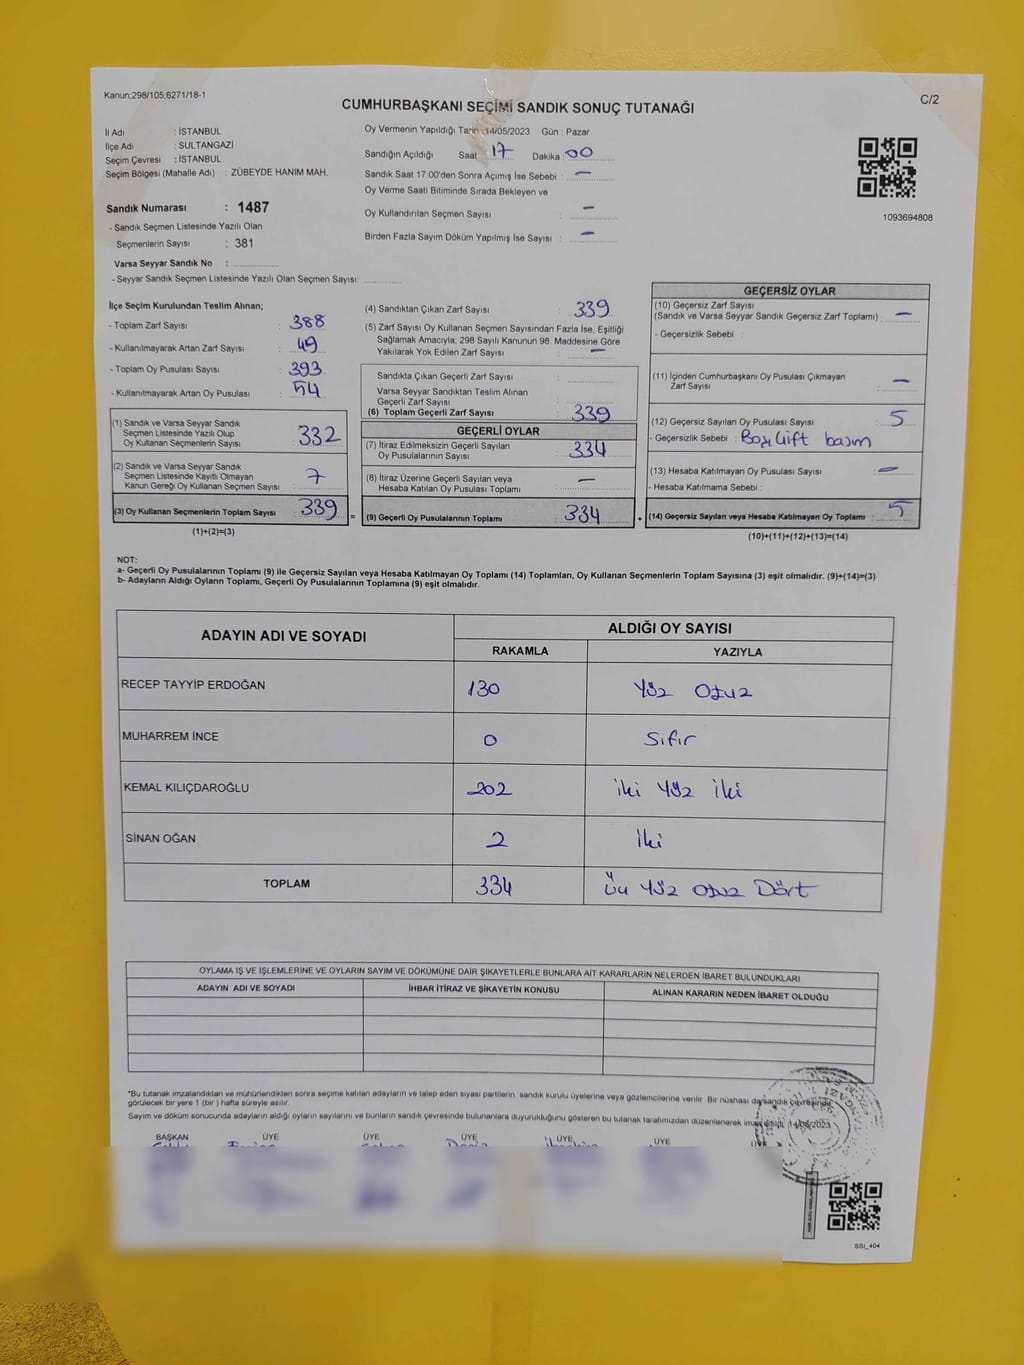 Kanun;298/105;6271/18-1
C/2
CUMHURBAŞKANI SEÇİMİ SANDIK SONUÇ TUTANAĞI
İl Adı : İSTANBUL
İlçe Adı : SULTANGAZİ
Seçim Çevresi : İSTANBUL
Seçim Bölgesi (Mahalle Adı) : ZÜBEYDE HANIM MAH.
Sandık Numarası : 1487
- Sandık Seçmen Listesinde Yazılı Olan
Seçmenlerin Sayısı : 381
Varsa Seyyar Sandık No :
- Seyyar Sandık Seçmen Listesinde Yazılı Olan Seçmen Sayısı:
Oy Vermenin Yapıldığı Tarih 14/05/2023 Gün : Pazar
Sandığın Açıldığı Saat : 17 Dakika : 00
Sandık Saat 17:00'den Sonra Açımış İse Sebebi : —
Oy Verme Saati Bitiminde Sırada Bekleyen ve
Oy Kullandırılan Seçmen Sayısı : —
Birden Fazla Sayım Döküm Yapılmış İse Sayısı : —
1093694808
İlçe Seçim Kurulundan Teslim Alınan;
- Toplam Zarf Sayısı : 388
- Kullanılmayarak Artan Zarf Sayısı : 49
- Toplam Oy Pusulası Sayısı : 393
- Kullanılmayarak Artan Oy Pusulası : 54
(1) Sandık ve Varsa Seyyar Sandık
Seçmen Listesinde Yazılı Olup
Oy Kullanan Seçmenlerin Sayısı : 332
(2) Sandık ve Varsa Seyyar Sandık
Seçmen Listesinde Kayıtlı Olmayan
Kanun Gereği Oy Kullanan Seçmen Sayısı : 7
(3) Oy Kullanan Seçmenlerin Toplam Sayısı : 339
(1)+(2)=(3)
=
(4) Sandıktan Çıkan Zarf Sayısı : 339
(5) Zarf Sayısı Oy Kullanan Seçmen Sayısından Fazla İse, Eşitliği
Sağlamak Amacıyla; 298 Sayılı Kanunun 98. Maddesine Göre
Yakılarak Yok Edilen Zarf Sayısı : —
Sandıkta Çıkan Geçerli Zarf Sayısı :
Varsa Seyyar Sandıktan Teslim Alınan
Geçerli Zarf Sayısı :
(6) Toplam Geçerli Zarf Sayısı : 339
GEÇERLİ OYLAR
(7) İtiraz Edilmeksizin Geçerli Sayılan
Oy Pusulalarının Sayısı : 334
(8) İtiraz Üzerine Geçerli Sayılan veya
Hesaba Katılan Oy Pusulası Toplamı : —
(9) Geçerli Oy Pusulalarının Toplamı : 334
+
GEÇERSİZ OYLAR
(10) Geçersiz Zarf Sayısı
(Sandık ve Varsa Seyyar Sandık Geçersiz Zarf Toplamı) : —
- Geçersizlik Sebebi :
(11) İçinden Cumhurbaşkanı Oy Pusulası Çıkmayan
Zarf Sayısı : —
(12) Geçersiz Sayılan Oy Pusulası Sayısı : 5
- Geçersizlik Sebebi : Boş Çift basım
(13) Hesaba Katılmayan Oy Pusulası Sayısı : —
- Hesaba Katılmama Sebebi :
(14) Geçersiz Sayılan veya Hesaba Katılmayan Oy Toplamı : 5
(10)+(11)+(12)+(13)=(14)
NOT:
a- Geçerli Oy Pusulalarının Toplamı (9) ile Geçersiz Sayılan veya Hesaba Katılmayan Oy Toplamı (14) Toplamları, Oy Kullanan Seçmenlerin Toplam Sayısına (3) eşit olmalıdır. (9)+(14)=(3)
b- Adayların Aldığı Oyların Toplamı, Geçerli Oy Pusulalarının Toplamına (9) eşit olmalıdır.
ADAYIN ADI VE SOYADI
ALDIĞI OY SAYISI
RAKAMLA YAZIYLA
RECEP TAYYİP ERDOĞAN 130 Yüz Otuz
MUHARREM İNCE 0 Sıfır
KEMAL KILIÇDAROĞLU 202 İki Yüz İki
SİNAN OĞAN 2 İki
TOPLAM 334 Üç Yüz Otuz Dört
OYLAMA İŞ VE İŞLEMLERİNE VE OYLARIN SAYIM VE DÖKÜMÜNE DAİR ŞİKAYETLERLE BUNLARA AİT KARARLARIN NELERDEN İBARET BULUNDUKLARI
ADAYIN ADI VE SOYADI İHBAR İTİRAZ VE ŞİKAYETİN KONUSU ALINAN KARARIN NEDEN İBARET OLDUĞU
*Bu tutanak imzalandıktan ve mühürlendikten sonra seçime katılan adayların ve talep eden siyasi partilerin sandık kurulu üyelerine veya gözlemcilerine verilir. Bir nüshası da sandık çevresinde
görülecek bir yere 1 (bir) hafta süreyle asılır.
Sayım ve döküm sonucunda adayların aldığı oyların sayılarını ve bunların sandık çevresinde bulunanlara duyurulduğunu gösteren bu tutanak tarafımızdan düzenlenerek imza edildi. 14/05/2023
BAŞKAN ÜYE ÜYE ÜYE ÜYE ÜYE ÜYE
SSI_404